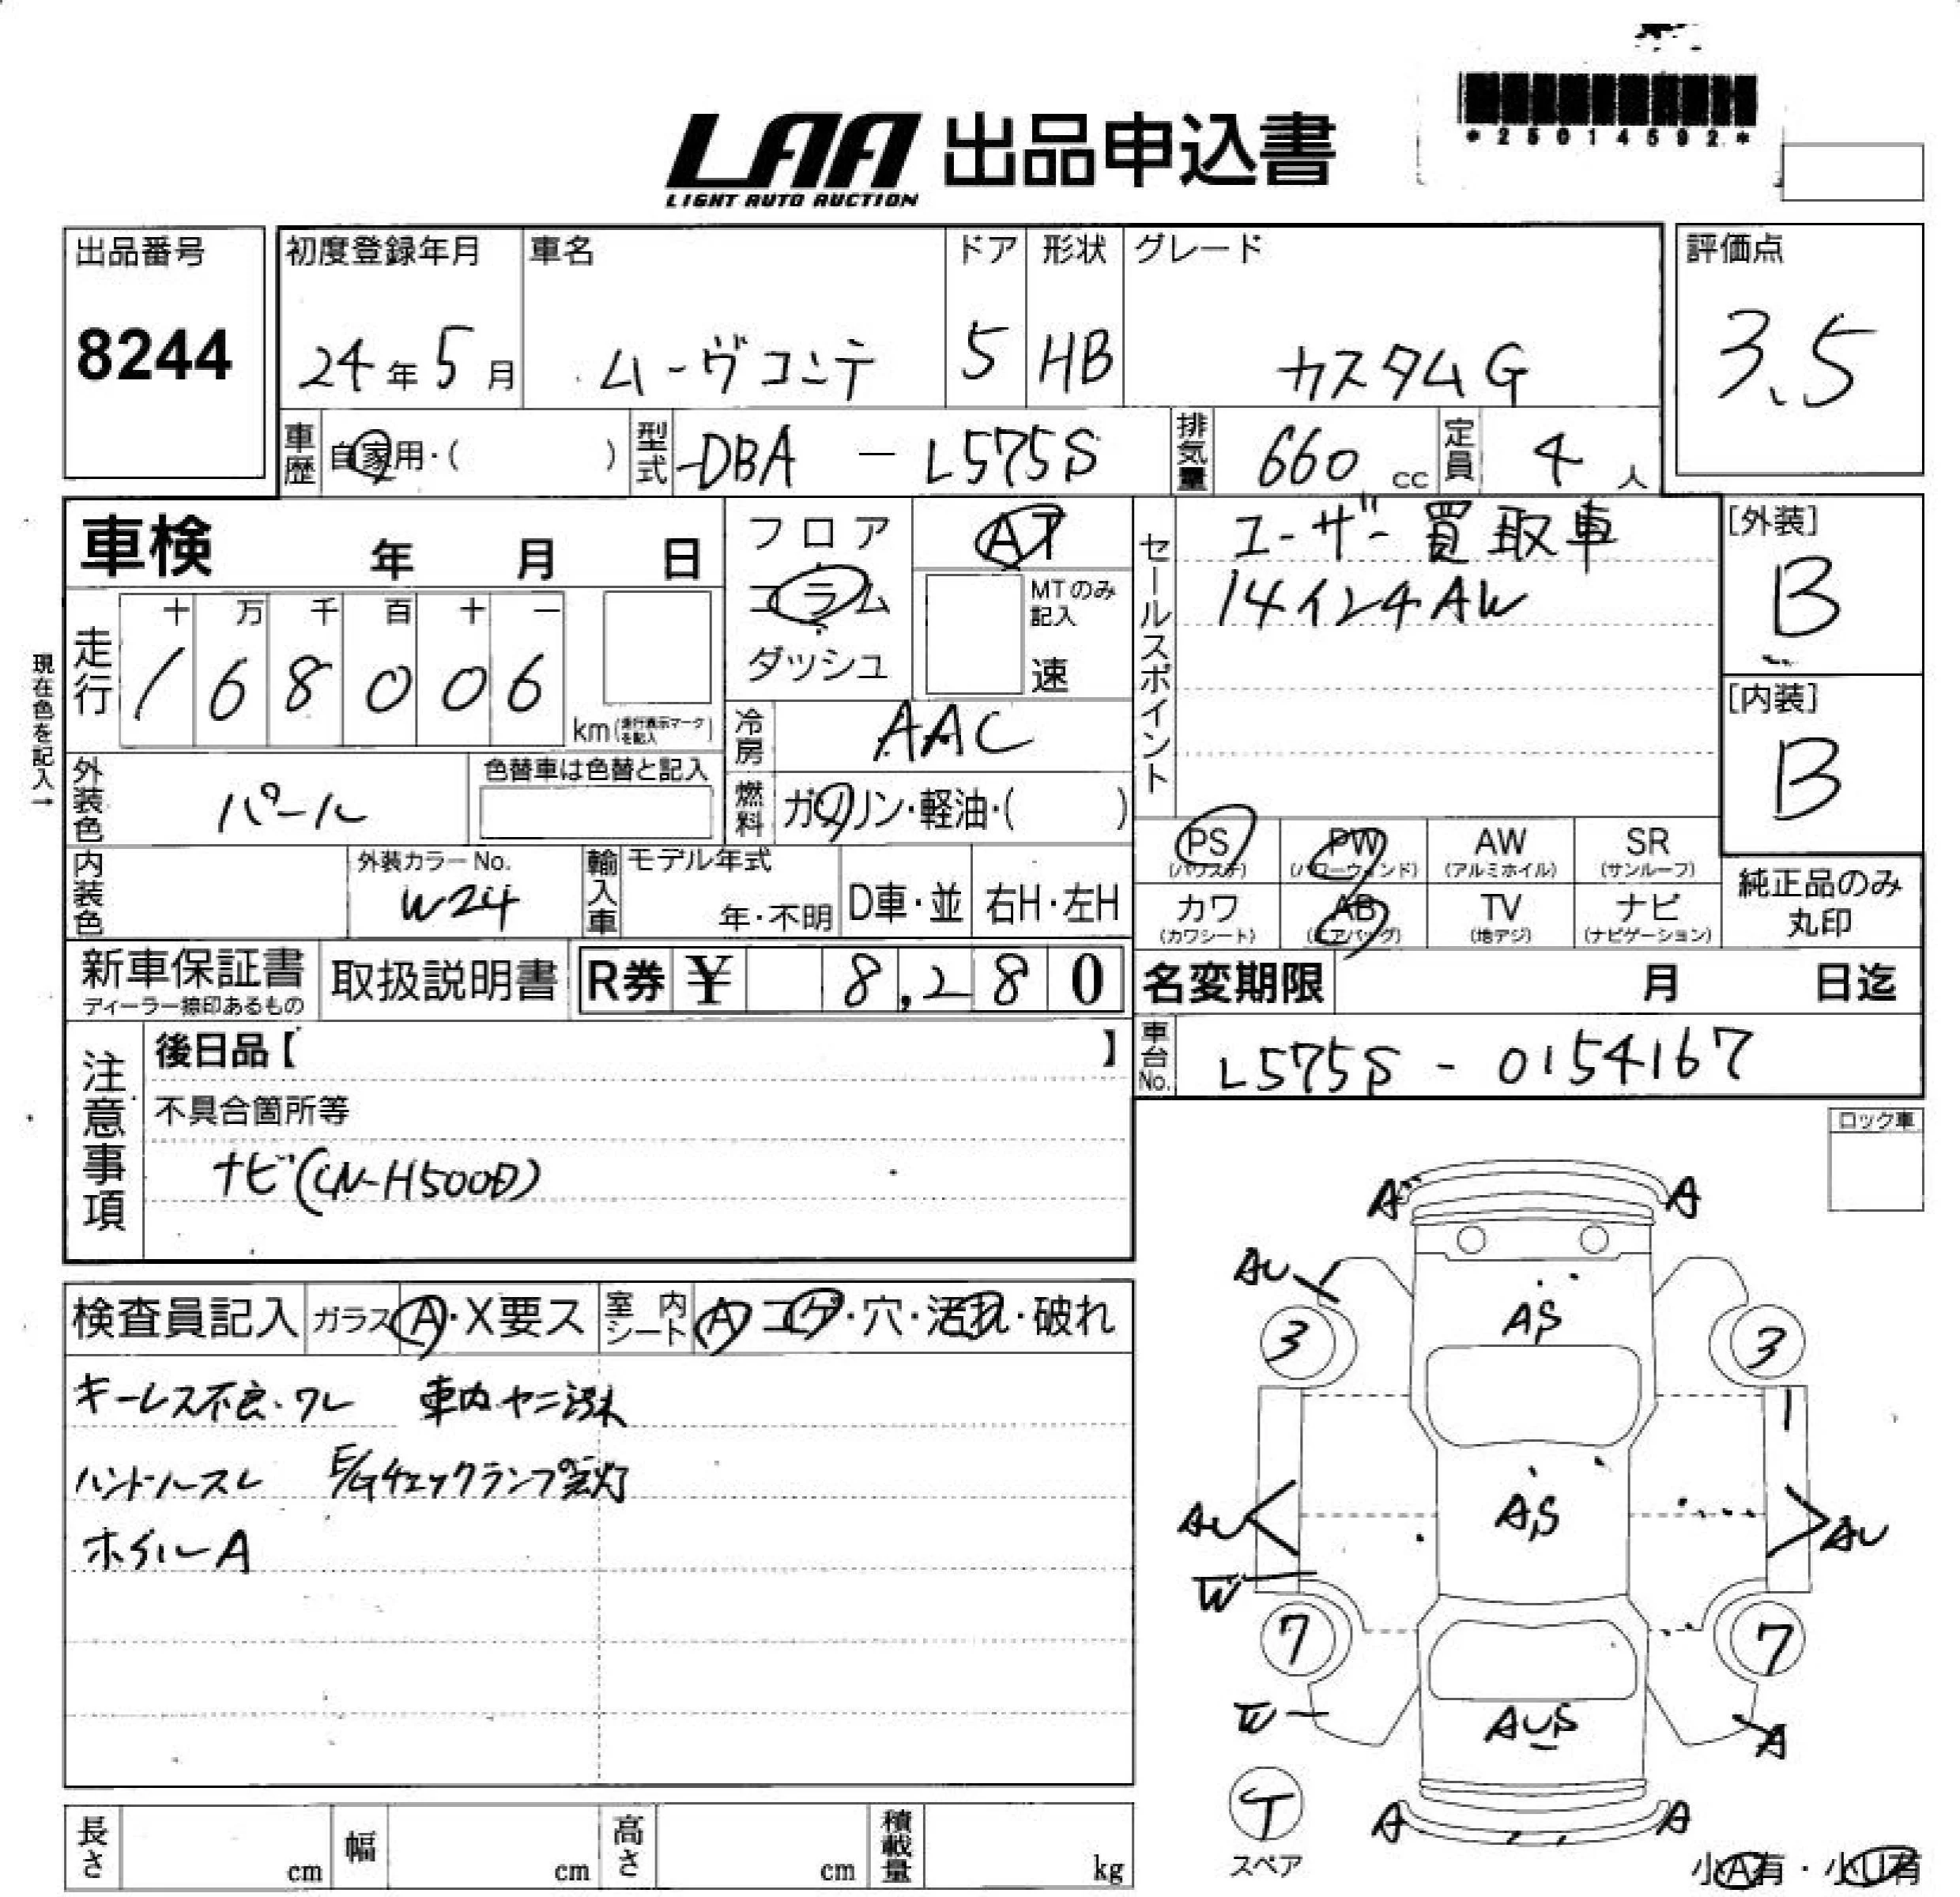 *25014592*
LAA 出品申込書
LIGHT AUTO AUCTION
出品番号 8244
初度登録年月 24年5月
車名 ムーヴコンテ
ドア 5
形状 HB
グレード カスタムG
評価点 3.5
車歴 自家用・( )
型式 DBA - L575S
排気量 660 cc
定員 4 人
車検 年 月 日
フロア
コラム
ダッシュ
AT
MTのみ記入
速
セールスポイント
ユーザー買取車
14インチAW
[外装] B
[内装] B
現在色を記入→
走行
十 万 千 百 十 一
1 6 8 0 0 6
km(走行表示マークを記入)
冷房 AAC
外装色 パール
色替車は色替と記入
燃料 ガソリン・軽油・( )
PS (パワステ)
PW (パワーウィンド)
AW (アルミホイル)
SR (サンルーフ)
カワ (カワシート)
AB (エアバッグ)
TV (地デジ)
ナビ (ナビゲーション)
純正品のみ
丸印
内装色
外装カラーNo. W24
輸入車
モデル年式
年・不明
D車・並
右H・左H
新車保証書
ディーラー捺印あるもの
取扱説明書
R券 ¥ 8,280
名変期限 月 日迄
車台No. L575S - 0154167
注意事項
後日品【 】
不具合箇所等
ナビ(CN-H500D)
ロック車
検査員記入
ガラス A・X要ス
室内シート A コゲ・穴・汚れ・破れ
キーレス不良・ワレ 車内ヤニ汚れ
ハンドルスレ E/Gチェックランプ点灯
ホイルA
A A
AU
AS
3 3
AU AS AU
W
7 7
W
AUS
A
T
スペア
A A
小A有・小U有
長さ cm
幅 cm
高さ cm
積載量 kg